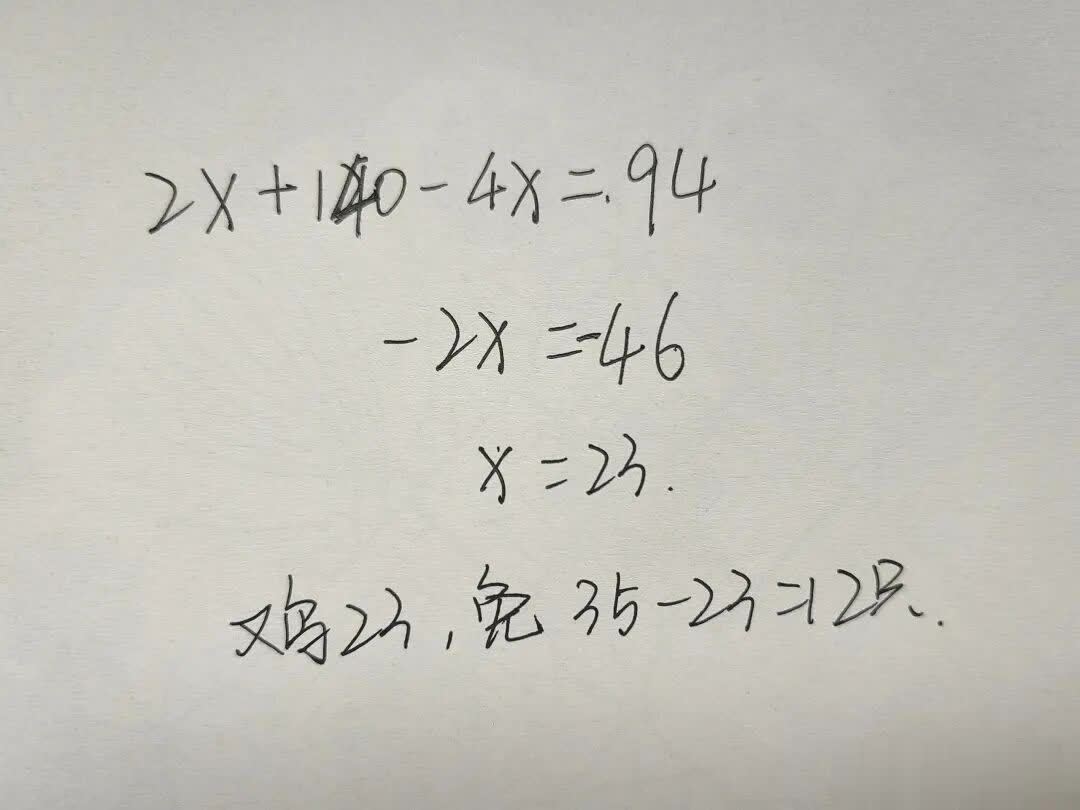 2x+140-4x=94
-2x=-46
x=23.
鸡23,兔35-23=12只.